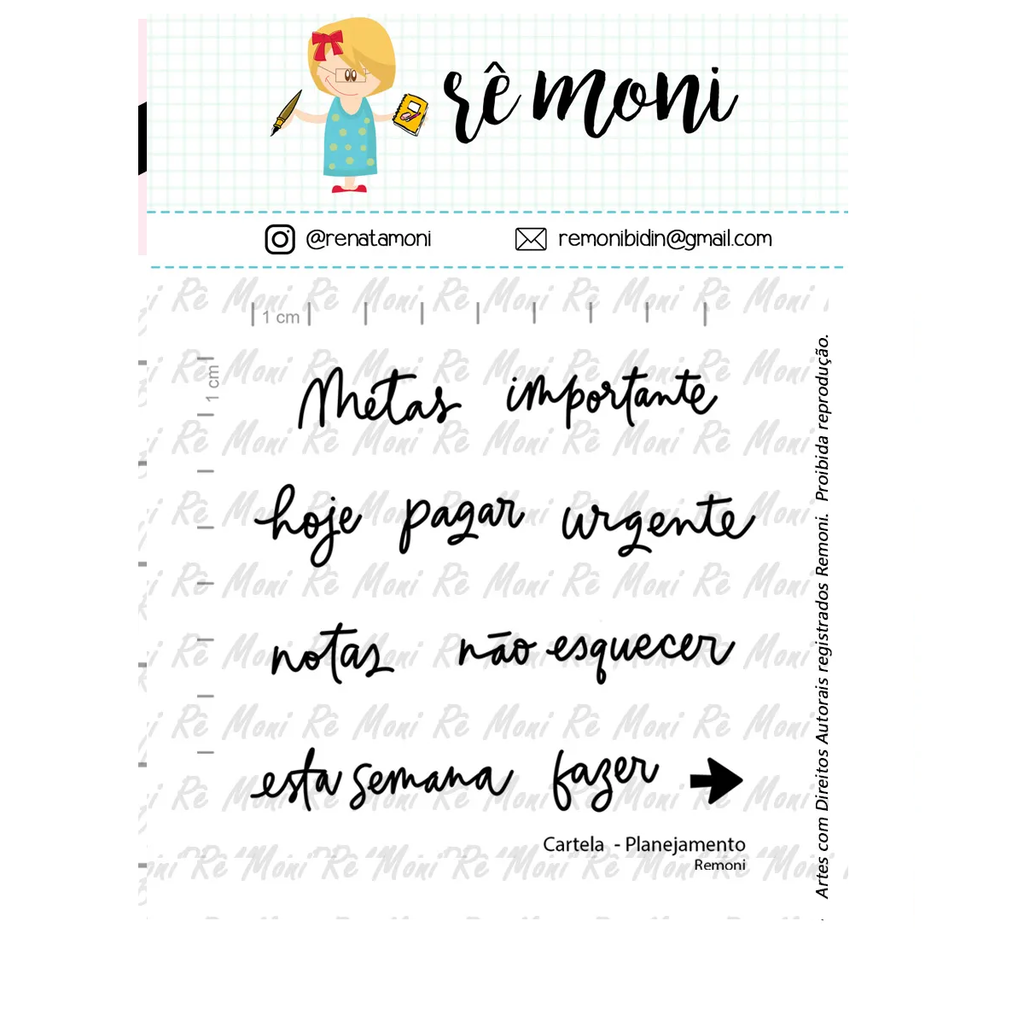 rê moni
@renatamoni remonibidin@gmail.com
1 cm
1 cm
Metas importante
hoje pagar urgente
notas não esquecer
esta semana fazer
Cartela - Planejamento
Remoni
Artes com Direitos Autorais registrados Remoni. Proibida reprodução.
Rê Moni Rê Moni Rê Moni Rê Moni Rê Moni